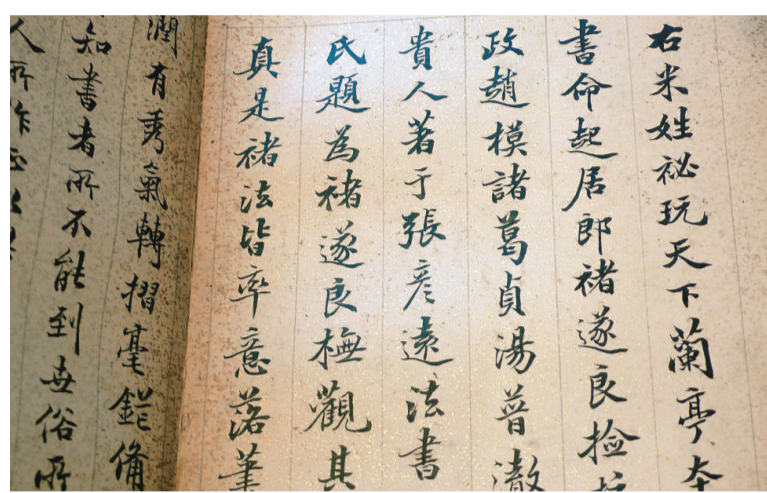 右米姓祕玩天下蘭亭本
書命起居郎褚遂良撿校
政趙模諸葛貞湯普澈
貴人著于張彥遠法書
氏題為褚遂良橅觀其
真是褚法皆率意落筆
潤有秀氣轉摺毫鋩備
知書者所不能到世俗所
人所作正以